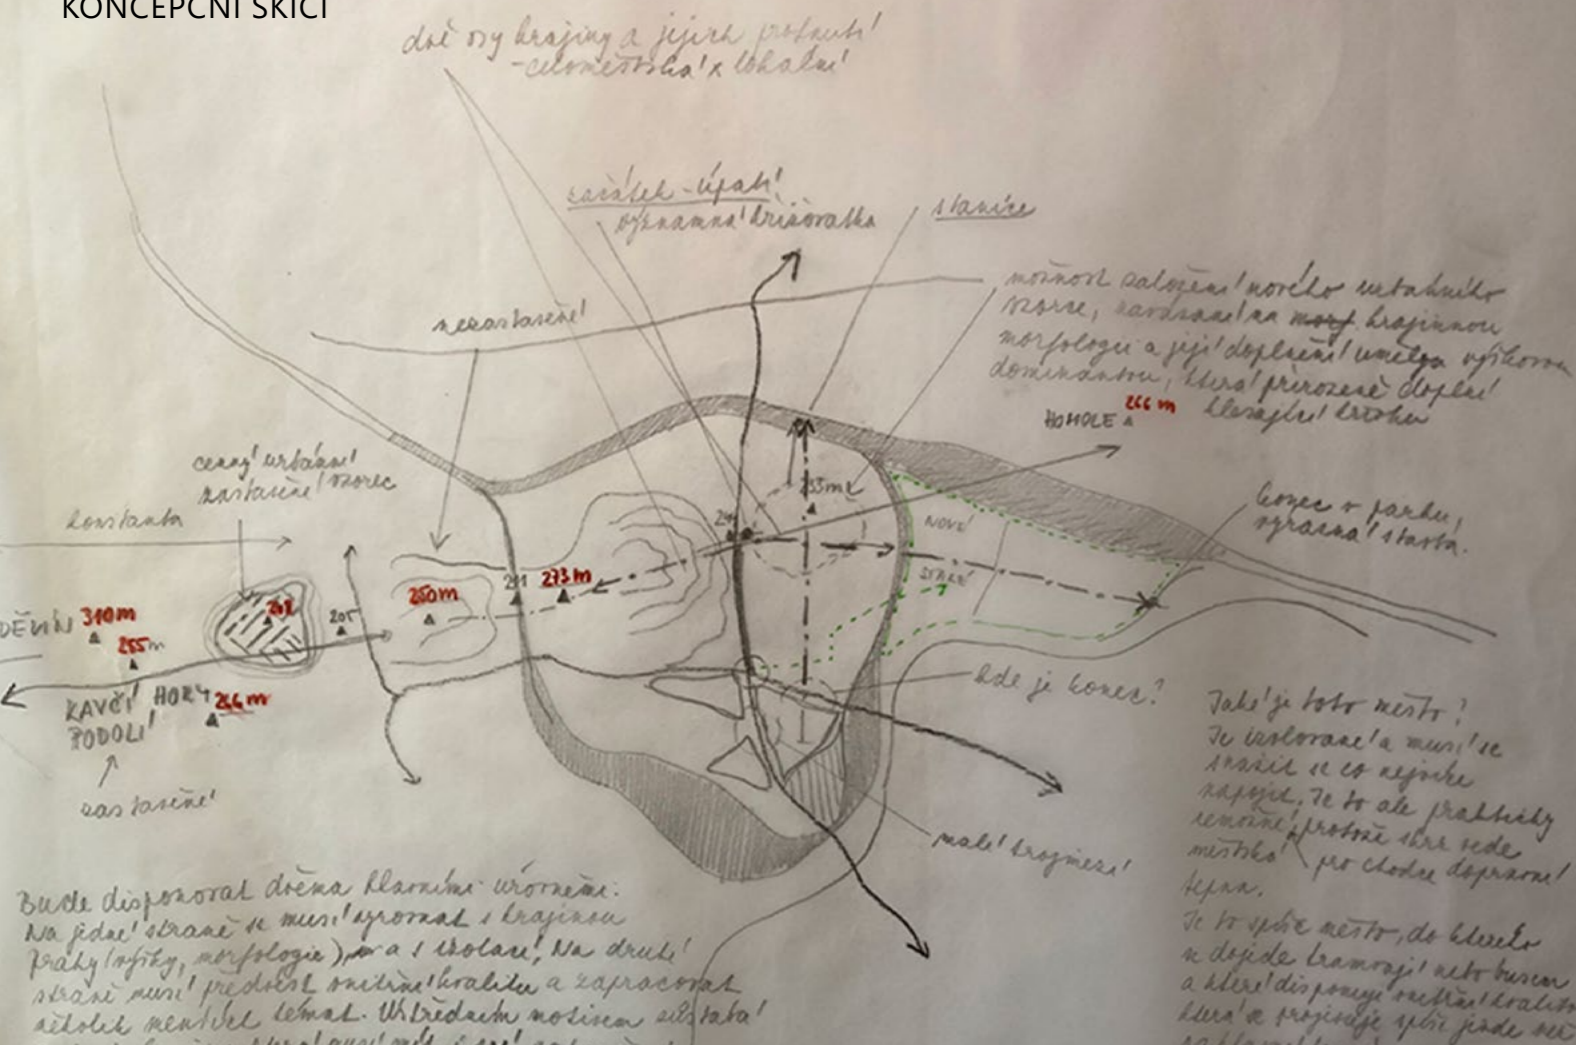 KONCEPČNÍ SKICI
dvě osy krajiny a jejich protnutí
- celoměstská x lokální
začátek - úpatí
významná křižovatka
stanice
nezastavěné
možnost založení nového urbánního
vzorce, navázání na morf krajinnou
morfologii a její doplnění umělou výškovou
dominantou, která přirozeně doplní
klesající
266 m
HOMOLE
cenný urbánní
zastavěný vzorec
konstanta
konec v parku,
výrazná stavba.
NOVÉ
STARÉ
211
273 m
250 m
205
DĚVÍN 310 m
255 m
KAVČÍ HORY 266 m
PODOLÍ
zastavěné
kde je konec?
malé trojmezí
Jaké je toto město?
Je izolované a musí se
snažit se co nejvíce
napojit. Je to ale prakticky
nemožné, protože skrz vede
městská pro chodce dopravní
tepna.
Je to spíše město, do kterého
se dojede tramvají nebo busem
a které disponuje vnitřní kvalitou
která se projevuje spíše jinde než
Bude disponovat dvěma hlavními úrovněmi.
Na jedné straně se musí vyrovnat s krajinou
Prahy (výšky, morfologie), a s izolací. Na druhé
straně musí přednést vnitřní kvalitu a zapracovat
několik menších témat. Ústředním motivem